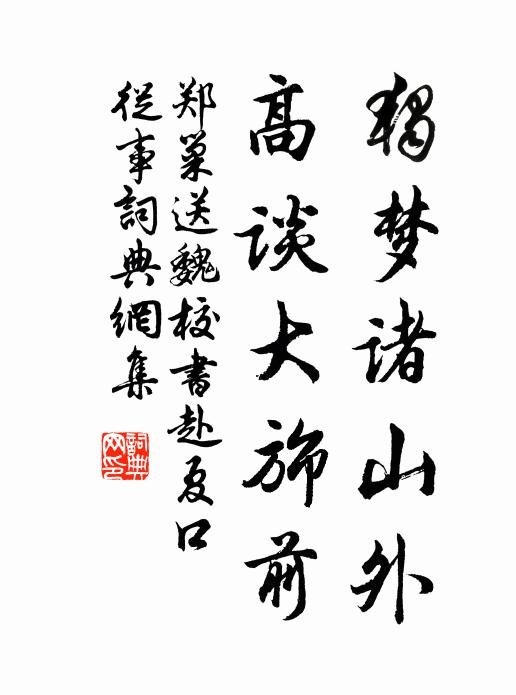 独梦诸山外
高谈大旆前
郑巢送魏校书赴夏口
從事詞典網集
詞典網印